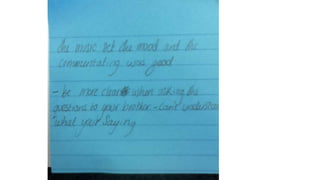 the music set the mood and the
commentating was good
- be more clear when asking the
questions to your brother - can't understand
what your saying